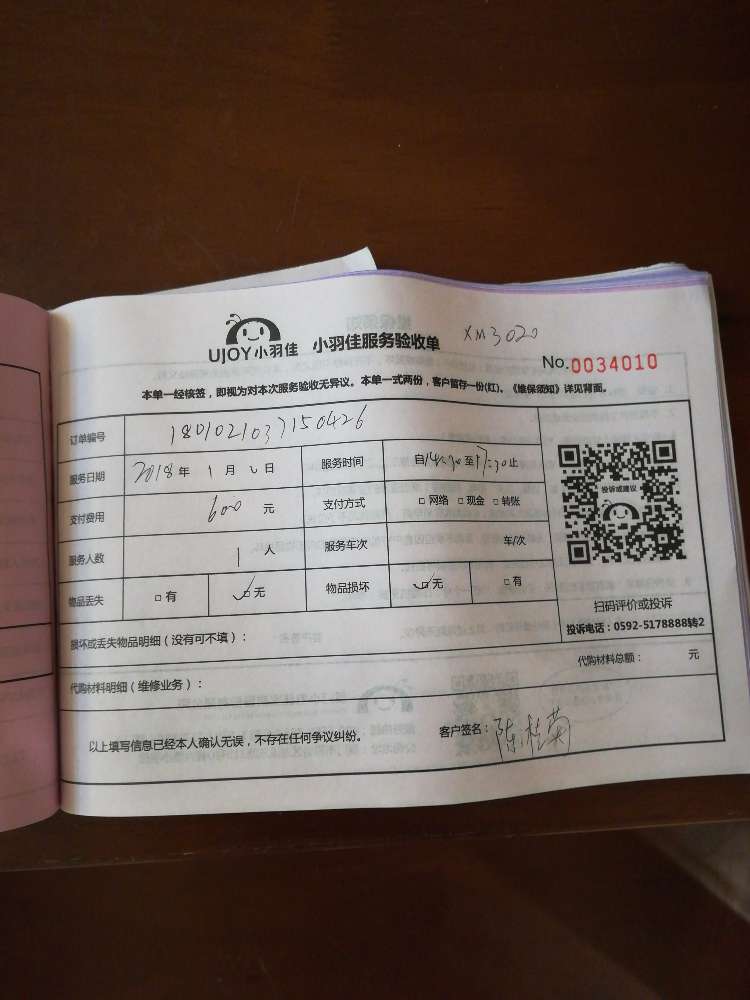 UJOY小羽佳 小羽佳服务验收单 XM3020
No.0034010
本单一经核签，即视为对本次服务验收无异议。本单一式两份，客户留存一份(红)。《维保须知》详见背面。
订单编号 1801021037150426
服务日期 2018年1月2日 服务时间 自14:30至17:30止
支付费用 600元 支付方式 □网络 □现金 □转账
服务人数 1人 服务车次 车/次
物品丢失 □有 ☑无 物品损坏 ☑无 □有
投诉或建议
扫码评价或投诉
投诉电话：0592-5178888转2
损坏或丢失物品明细（没有可不填）：
代购材料明细（维修业务）： 代购材料总额： 元
以上填写信息已经本人确认无误，不存在任何争议纠纷。 客户签名：陈桂菊